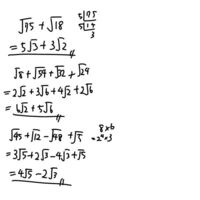 √75 + √18
5|75
5|15
3
= 5√3 + 3√2
√8 + √54 + √32 + √24
= 2√2 + 3√6 + 4√2 + 2√6
= 6√2 + 5√6
8×6
√45 + √12 − √48 + √5 = 2⁴×3
= 3√5 + 2√3 − 4√3 + √5
= 4√5 − 2√3